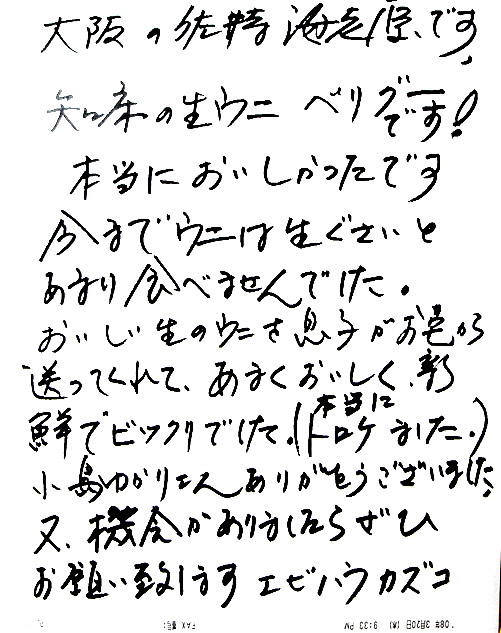 大阪の佐井寺海老原です、
知床の生ウニ ベリグーです!
本当においしかったです
今までウニは生ぐさいと
あまり食べませんでした。
おいしい生のウニを息子がお宅から
送ってくれて、あまくおいしく、新
鮮でビックリでした。(本当にトロケました。)
小島ゆかりさんありがとうございました
又、機会がありましたらぜひ
お願い致します エビハラカズコ
FAX 番号:
08年 3月20日 (木) 9:33 PM